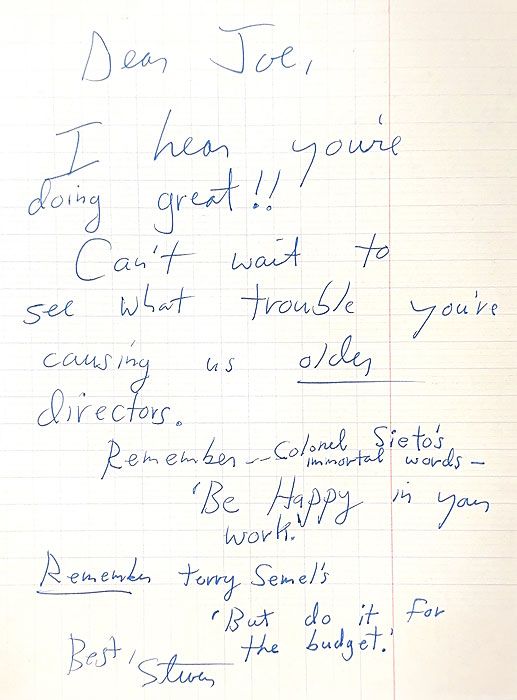 Dear Joe,
I hear you're
doing great!!
Can't wait to
see what trouble you're
causing us older
directors.
Remember -- Colonel Sieto's
immortal words -
'Be Happy in your
work.'
Remember Terry Semel's
'But do it for
the budget.'
Best,
Steven